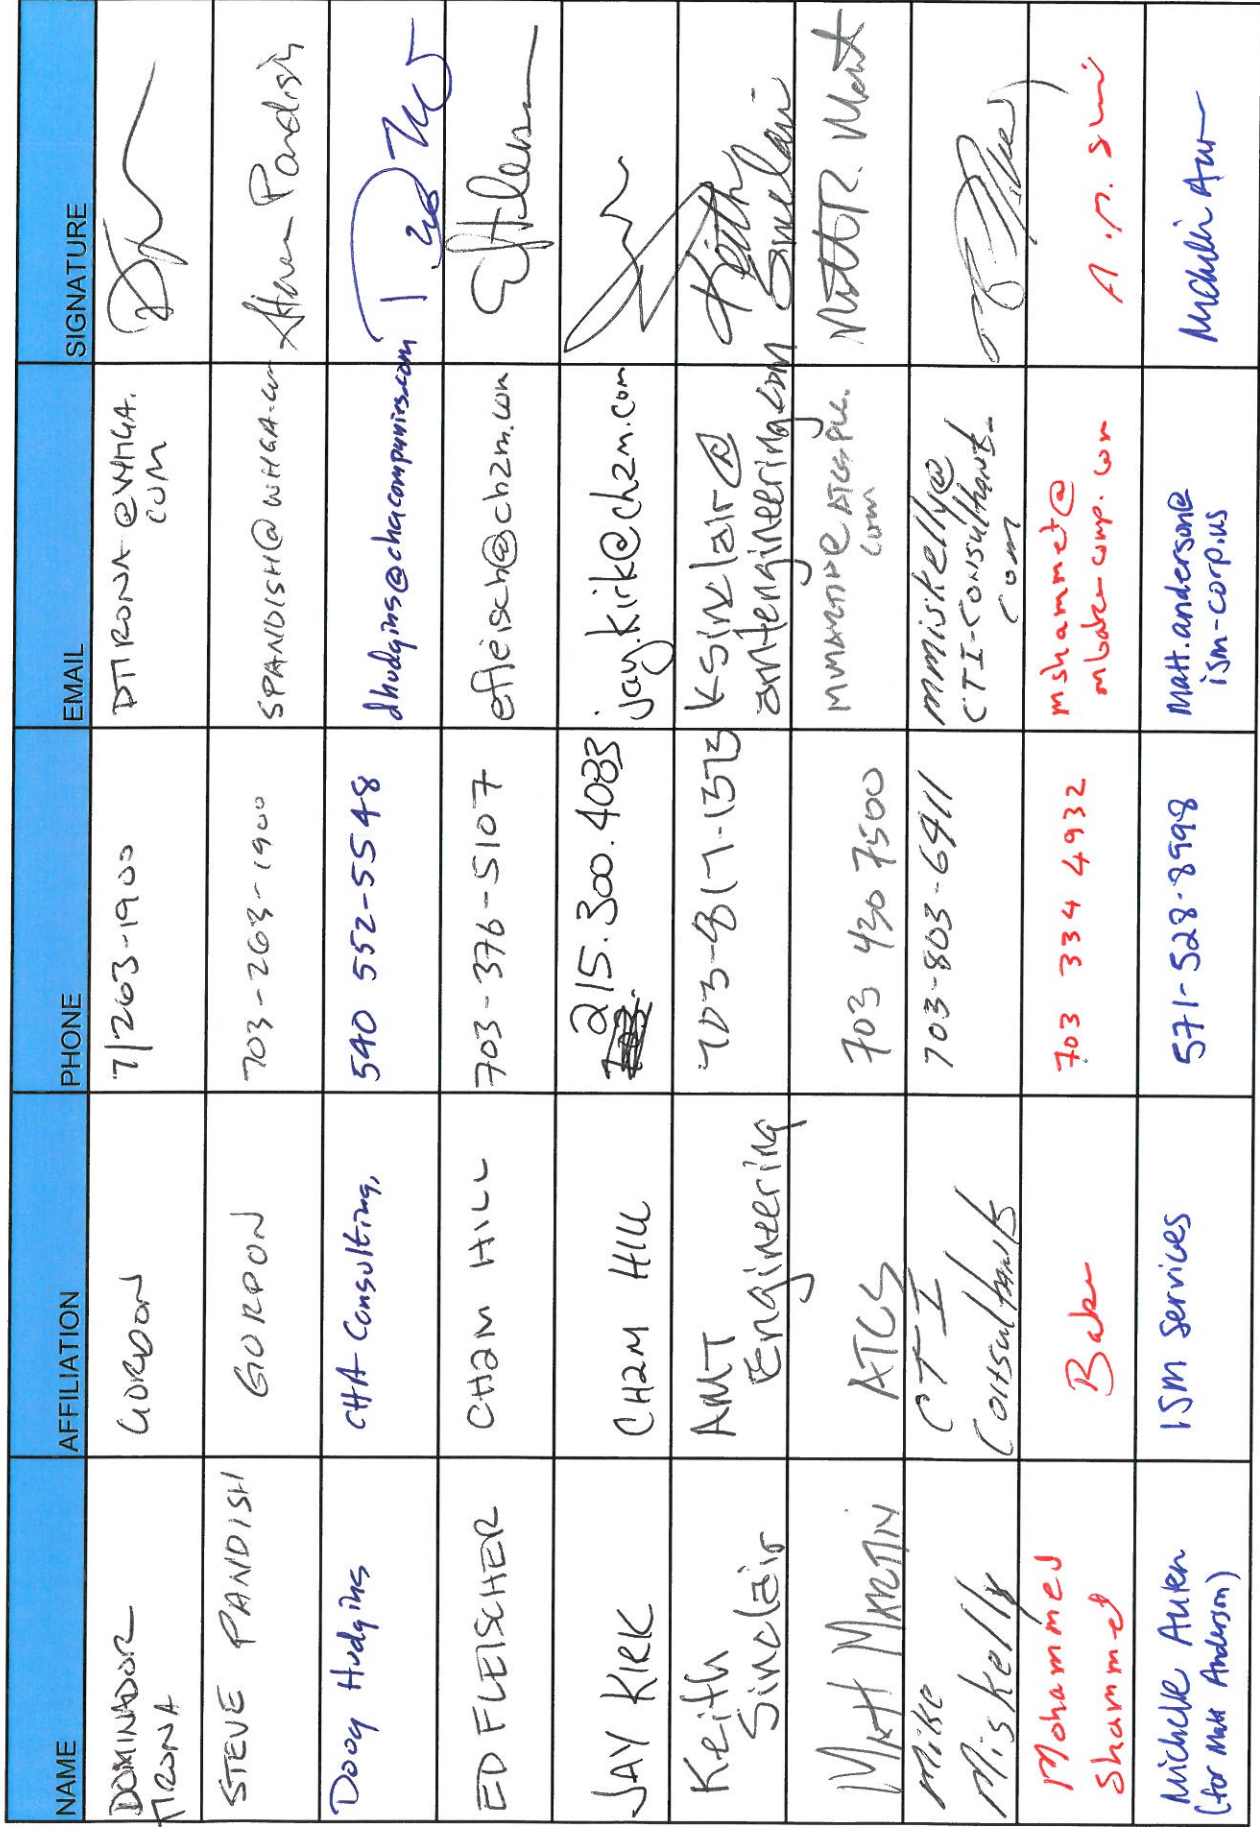 NAME AFFILIATION PHONE EMAIL SIGNATURE
DOMINADOR
TIRONA
GORDON
7/263-1900
DTIRONA@WHGA.
COM
STEVE PANDISH
GORDON
703-263-1900
SPANDISH@WHGA.com
Pandish
Doug Hudgins
CHA Consulting,
540 552-5548
dhudgins@chacompanies.com
ED FLEISCHER
CH2M HILL
703-376-5107
efleisch@ch2m.com
JAY KIRK
CH2M HILL
703.
215.300.4083
jay.kirk@ch2m.com
Keith
Sinclair
AMT
Engineering
703-817-1373
ksinclair@
amtengineering.com
Keith
Sinclair
Matt MARTIN
ATCS
703 430 7500
MMARTIN@ATCSPLC.
com
Mike
Miskelly
CTI
Consultants
703-803-6411
mmiskelly@
CTI-Consultants.
com
Mohammed
Shammet
Baker
703 334 4932
mshammet@
mbakercomp.com
Michelle Auten
(for Matt Anderson)
ISM Services
571-528-8998
Matt.anderson@
ism-corp.us